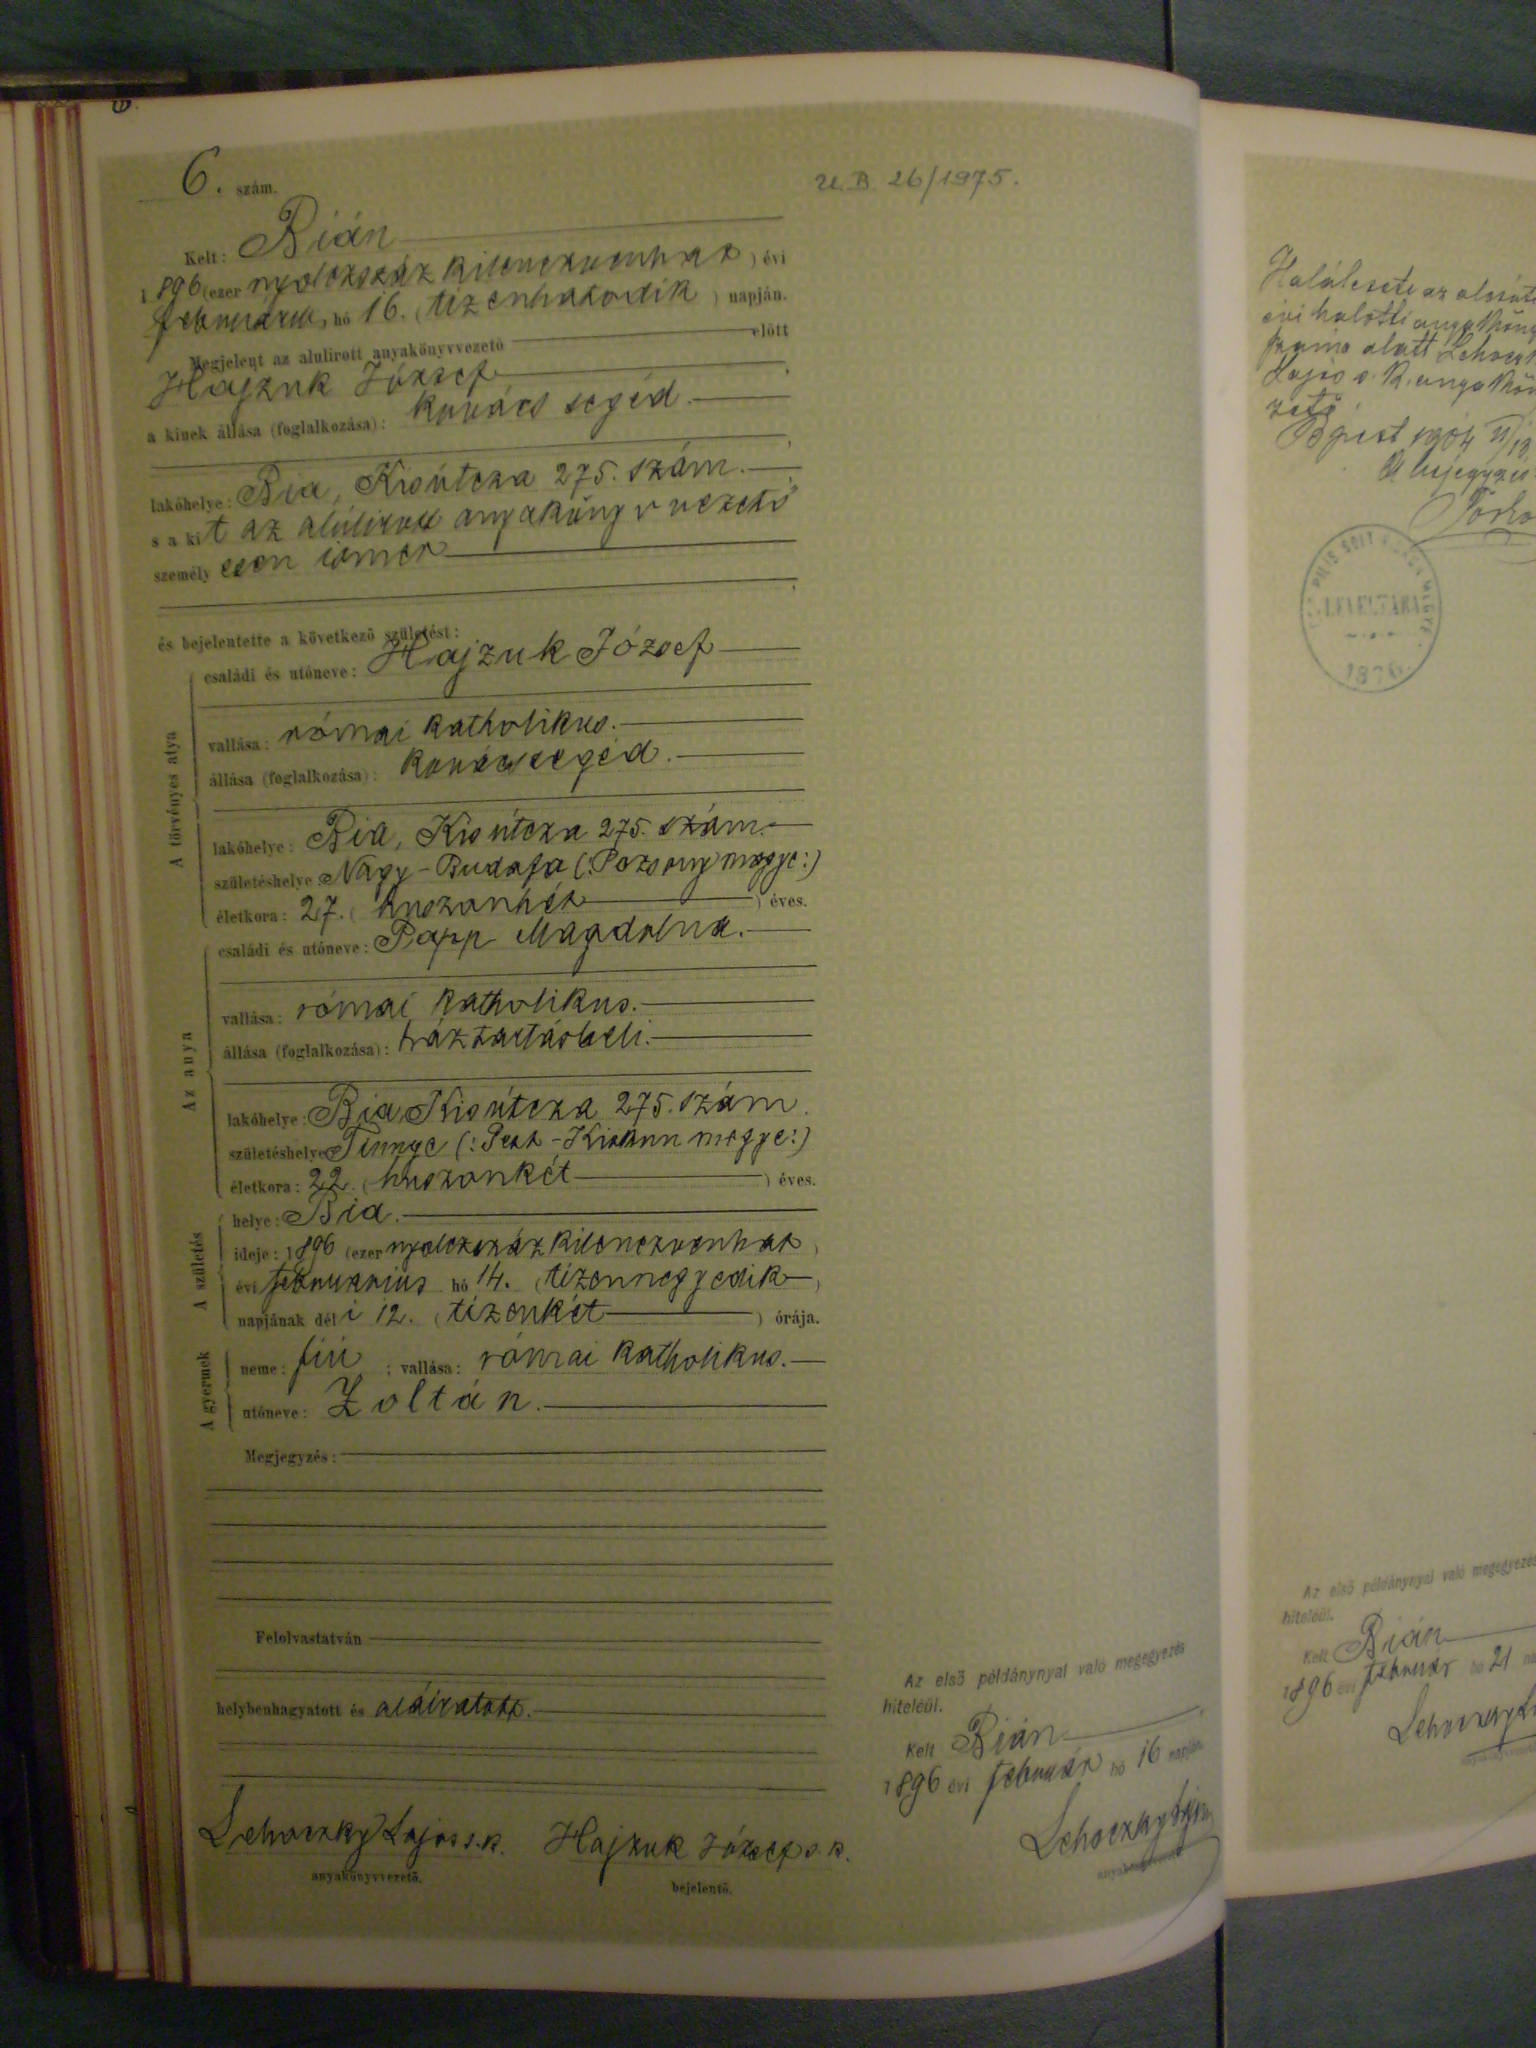 6. szám.
U. B. 26/1975.
Kelt: Bián
1896 (ezer nyolczszáz kilenczvenhat) évi
februárius hó 16. (tizenhatodik) napján.
Megjelent az alulirott anyakönyvvezető előtt
Hajzuk József
a kinek állása (foglalkozása): kovács segéd.
lakóhelye: Bia, Kisútcza 275. szám.
s a kit az alúlirott anyakönyvvezető
személyesen ismer
és bejelentette a következő születést:
A törvényes atya
családi és utóneve: Hajzuk József
vallása: római katholikus.
állása (foglalkozása): kovácssegéd.
lakóhelye: Bia, Kisútcza 275. szám.
születéshelye: Nagy-Budafa (: Pozsony megye:)
életkora: 27. (huszonhét) éves.
Az anya
családi és utóneve: Papp Magdolna.
vallása: római katholikus.
állása (foglalkozása): háztartásbeli.
lakóhelye: Bia, Kisútcza 275. szám.
születéshelye Tinnye (: Pest-Kiskun megye:)
életkora: 22. (huszonkét) éves.
A születés
helye: Bia.
ideje: 1896 (ezer nyolczszáz kilenczvenhat)
évi februárius hó 14. (tizennegyedik)
napjának déli 12. (tizenkét) órája.
A gyermek
neme: fiú; vallása: római katholikus.
utóneve: Zoltán.
Megjegyzés:
Felolvastatván
helybenhagyatott és aláiratott.
Lehoczky Lajos s. k. Hajzuk József s. k.
anyakönyvvezető. bejelentő.
Az első példánynyal való megegyezés
hiteléül.
Kelt Bián
1896 évi február hó 16 napján
Lehoczky Lajos
anyakönyvvezető
Halálesete az
évi halotti
száma alatt
Lajos s. k.
1904
A bejegyzés
LEVELTÁRA
1876
Az első példánynyal való megegyezés
hiteléül.
Kelt Bián
1896 évi február hó 21
Lehoczky